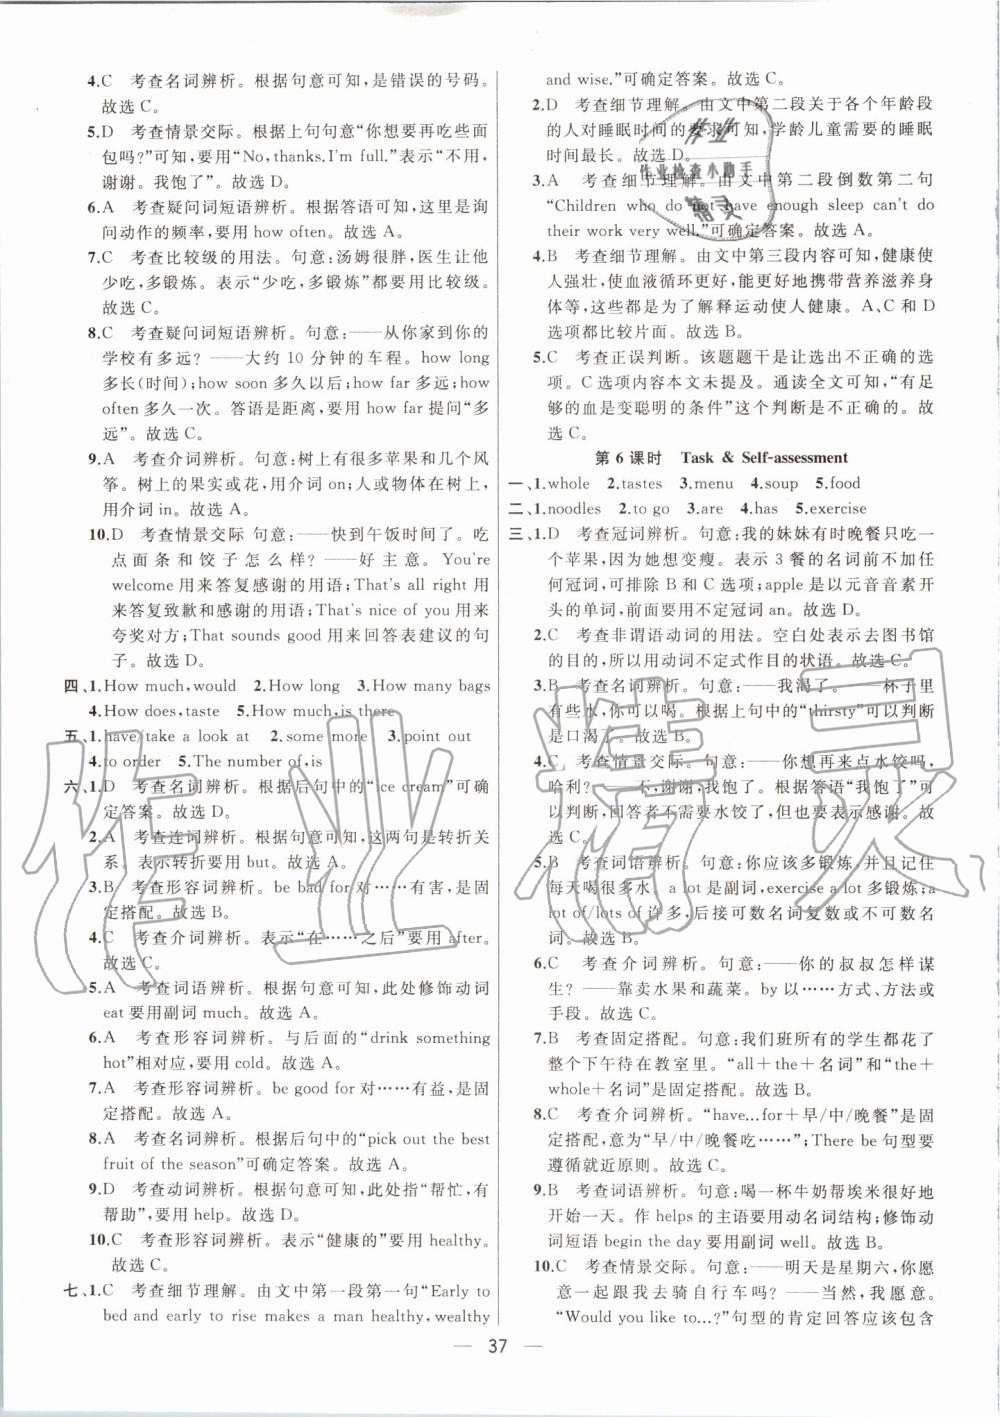 4.C 考查名词辨析。根据句意可知,是错误的号码。
故选 C。
5.D 考查情景交际。根据上句句意“你想要再吃些面
包吗?”可知,要用“No,thanks.I'm full.”表示“不用,
谢谢。我饱了”。故选 D。
6.A 考查疑问词短语辨析。根据答语可知,这里是询
问动作的频率,要用 how often。故选 A。
7.C 考查比较级的用法。句意:汤姆很胖,医生让他
少吃,多锻炼。表示“少吃,多锻炼”要用比较级。
故选 C。
8.C 考查疑问词短语辨析。句意:——从你家到你的
学校有多远? ——大约 10 分钟的车程。how long
多长(时间);how soon 多久以后;how far 多远;how
often 多久一次。答语是距离,要用 how far 提问“多
远”。故选 C。
9.A 考查介词辨析。句意:树上有很多苹果和几个风
筝。树上的果实或花,用介词 on;人或物体在树上,
用介词 in。故选 A。
10.D 考查情景交际 句意:——快到午饭时间了。吃
点面条和饺子怎么样? ——好主意。You're
welcome 用来答复感谢的用语;That's all right 用
来答复致歉和感谢的用语;That's nice of you 用来
夸奖对方;That sounds good 用来回答表建议的句
子。故选 D。
四、1.How much,would 2.How long 3.How many bags
4.How does,taste 5.How much,is there
五、1.have/take a look at 2.some more 3.point out
4.to order 5.The number of,is
六、1.D 考查名词辨析。根据后句中的“ice cream”可确
定答案。故选 D。
2.A 考查连词辨析。根据句意可知,这两句是转折关
系。表示转折要用 but。故选 A。
3.B 考查形容词辨析。be bad for 对……有害,是固
定搭配。故选 B。
4.C 考查介词辨析。表示“在……之后”要用 after。
故选 C。
5.A 考查词语辨析。根据句意可知,此处修饰动词
eat 要用副词 much。故选 A。
6.A 考查形容词辨析。与后面的“drink something
hot”相对应,要用 cold。故选 A。
7.A 考查形容词辨析。be good for 对……有益,是固
定搭配。故选 A。
8.A 考查名词辨析。根据后句中的“pick out the best
fruit of the season”可确定答案。故选 A。
9.D 考查动词辨析。根据句意可知,此处指“帮忙,有
帮助”,要用 help。故选 D。
10.C 考查形容词辨析。表示“健康的”要用 healthy。
故选 C。
七、1.C 考查细节理解。由文中第一段第一句“Early to
bed and early to rise makes a man healthy, wealthy
and wise.”可确定答案。故选 C。
2.D 考查细节理解。由文中第二段关于各个年龄段
的人对睡眠时间的要求可知,学龄儿童需要的睡眠
时间最长。故选 D。
3.A 考查细节理解。由文中第二段倒数第二句
“Children who do not have enough sleep can't do
their work very well.”可确定答案。故选 A。
4.B 考查细节理解。由文中第三段内容可知,健康使
人强壮,使血液循环更好,更好地携带营养滋养身
体等,这些都是为了解释运动使人健康。A、C 和 D
选项都比较片面。故选 B。
5.C 考查正误判断。该题题干是让选出不正确的选
项。C 选项内容本文未提及。通读全文可知,“有足
够的血是变聪明的条件”这个判断是不正确的。故
选 C。
第 6 课时 Task & Self-assessment
一、1.whole 2.tastes 3.menu 4.soup 5.food
二、1.noodles 2.to go 3.are 4.has 5.exercise
三、1.D 考查冠词辨析。句意:我的妹妹有时晚餐只吃一
个苹果,因为她想变瘦。表示 3 餐的名词前不加任
何冠词,可排除 B 和 C 选项;apple 是以元音音素开
头的单词,前面要用不定冠词 an。故选 D。
2.C 考查非谓语动词的用法。空白处表示去图书馆
的目的,所以用动词不定式作目的状语。故选 C。
3.B 考查名词辨析。句意:——我渴了。——杯子里
有些水,你可以喝。根据上句中的“thirsty”可以判断
是口渴了。故选 B。
4.C 考查情景交际。句意:——你想再来点水饺吗,
哈利? ——不,谢谢,我饱了。根据答语“我饱了”可
以判断,回答者不需要水饺了,但要表示感谢。故
选 C。
5.B 考查词语辨析。句意:你应该多锻炼,并且记住
每天喝很多水。a lot 是副词,exercise a lot 多锻炼;a
lot of/lots of 许多,后接可数名词复数或不可数名
词。故选 B。
6.C 考查介词辨析。句意:——你的叔叔怎样谋
生? ——靠卖水果和蔬菜。by 以……方式、方法或
手段。故选 C。
7.B 考查固定搭配。句意:我们班所有的学生都花了
整个下午待在教室里。“all+the+名词”和“the+
whole+名词”是固定搭配。故选 B。
8.C 考查介词辨析。“have...for+早/中/晚餐”是固
定搭配,意为“早/中/晚餐吃……”;There be 句型要
遵循就近原则。故选 C。
9.B 考查词语辨析。句意:喝一杯牛奶帮埃米很好地
开始一天。作 helps 的主语要用动名词结构;修饰动
词短语 begin the day 要用副词 well。故选 B。
10.C 考查情景交际。句意:——明天是星期六,你愿
意一起跟我去骑自行车吗? ——当然,我愿意。
“Would you like to...?”句型的肯定回答应该包含
— 37 —
作业
作业检查小助手
精灵
作业精灵